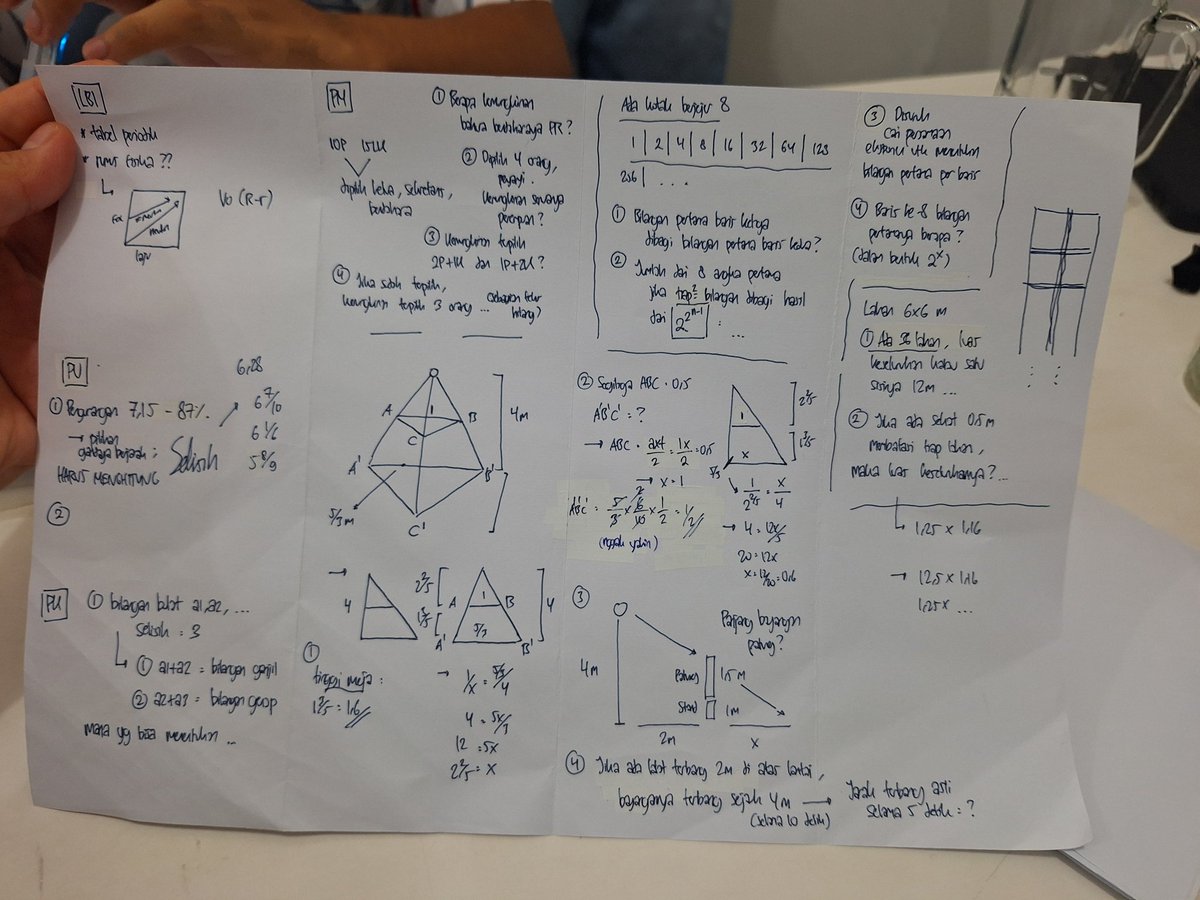 LBI
* tabel periodik
* rumus fisika ??
V0 (R-r)
laju
PU
① Pengurangan 7,15 - 87%.
→ pilihan
HARUS MENGHITUNG
Selisih
6,28
6 7/10
6 1/6
5 8/9
②
PK
① bilangan bulat a1, a2, ...
selisih = 3
① a1+a2 = bilangan ganjil
② a2+a3 = bilangan genap
mana yg bisa menentukan ...
PM
10P 15LK
dipilih ketua, sekretaris,
bendahara
① Berapa kemungkinan
bahwa bendaharanya PR?
② Dipilih 4 orang,
kemungkinan semuanya
perempuan?
③ Kemungkinan terpilih
2P+1L dan 1P+2L?
④ Jika sudah terpilih,
kemungkinan terpilih 3 orang ...
A B
C
A' B'
C'
5/3 m
4m
→ 4
2 2/5
1 3/5
A B
A' B'
1
5/3
4
①
tinggi meja =
1 3/5 = 1,6//
→ 1/x = 5/3/4
4 = 5x/3
12 = 5x
2 2/5 = x
Ada kotak berjejer 8
1 | 2 | 4 | 8 | 16 | 32 | 64 | 128
256 | ...
① Bilangan pertama baris ketiga
dibagi bilangan pertama baris kedua?
② Jumlah dari 8 angka pertama
jika tiap2 bilangan dibagi hasil
dari 2^2^n-1 : ...
② Segitiga ABC = 0,5
A'B'C' = ?
→ ABC = axt/2 = 1x/2 = 0,5
→ x = 1
A'B'C' = 5/3 x 6/10 x 1/2 = 1/2//
(nggak yakin)
1
x
5/3
2 2/5
1 3/5
1/2 2/5 = x/4
→ 4 = 12x/5
20 = 12x
x = 12/20 = 0,6
③
4m
2m
x
Patung 1,5 m
Stand 1m
Panjang bayangan
patung?
④ Jika ada lalat terbang 2m di atas lantai,
bayangannya terbang sejauh 4m →
(selama 10 detik)
Jarak terbang asli
selama 5 detik = ?
③ Disuruh
cari persamaan
eksponen utk menentukan
bilangan pertama per baris
④ Baris ke-8 bilangan
pertamanya berapa?
(dalam bentuk 2^x)
Lahan 6x6 m
① Ada 36 lahan, luas
keseluruhan kalau satu
sisinya 12m ...
② Jika ada sekat 0,5m
membatasi tiap lahan,
maka luas keseluruhannya? ...
1,25 x 1,16
→ 12,5 x 1,16
1,25 x ...